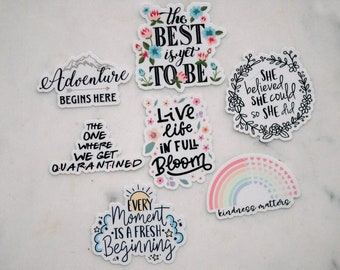 the
BEST
is yet
TO BE
Adventure
BEGINS HERE
SHE
believed
SHE could
so SHE did
THE
ONE
WHERE
WE GET
QUARANTINED
LIVE
life
IN FULL
Bloom
kindness matters
EVERY
Moment
IS A FRESH
Beginning